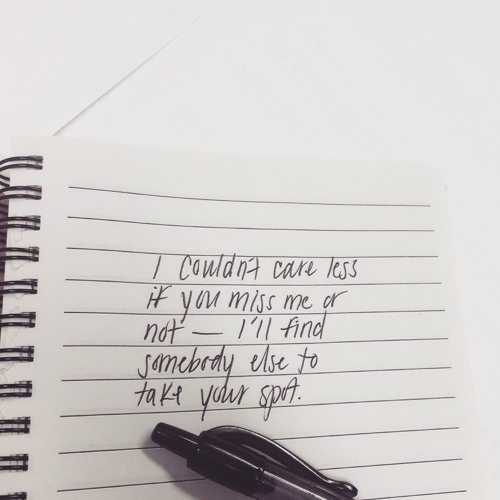 I couldn't care less
if you miss me or
not — I'll find
somebody else to
take your spot.